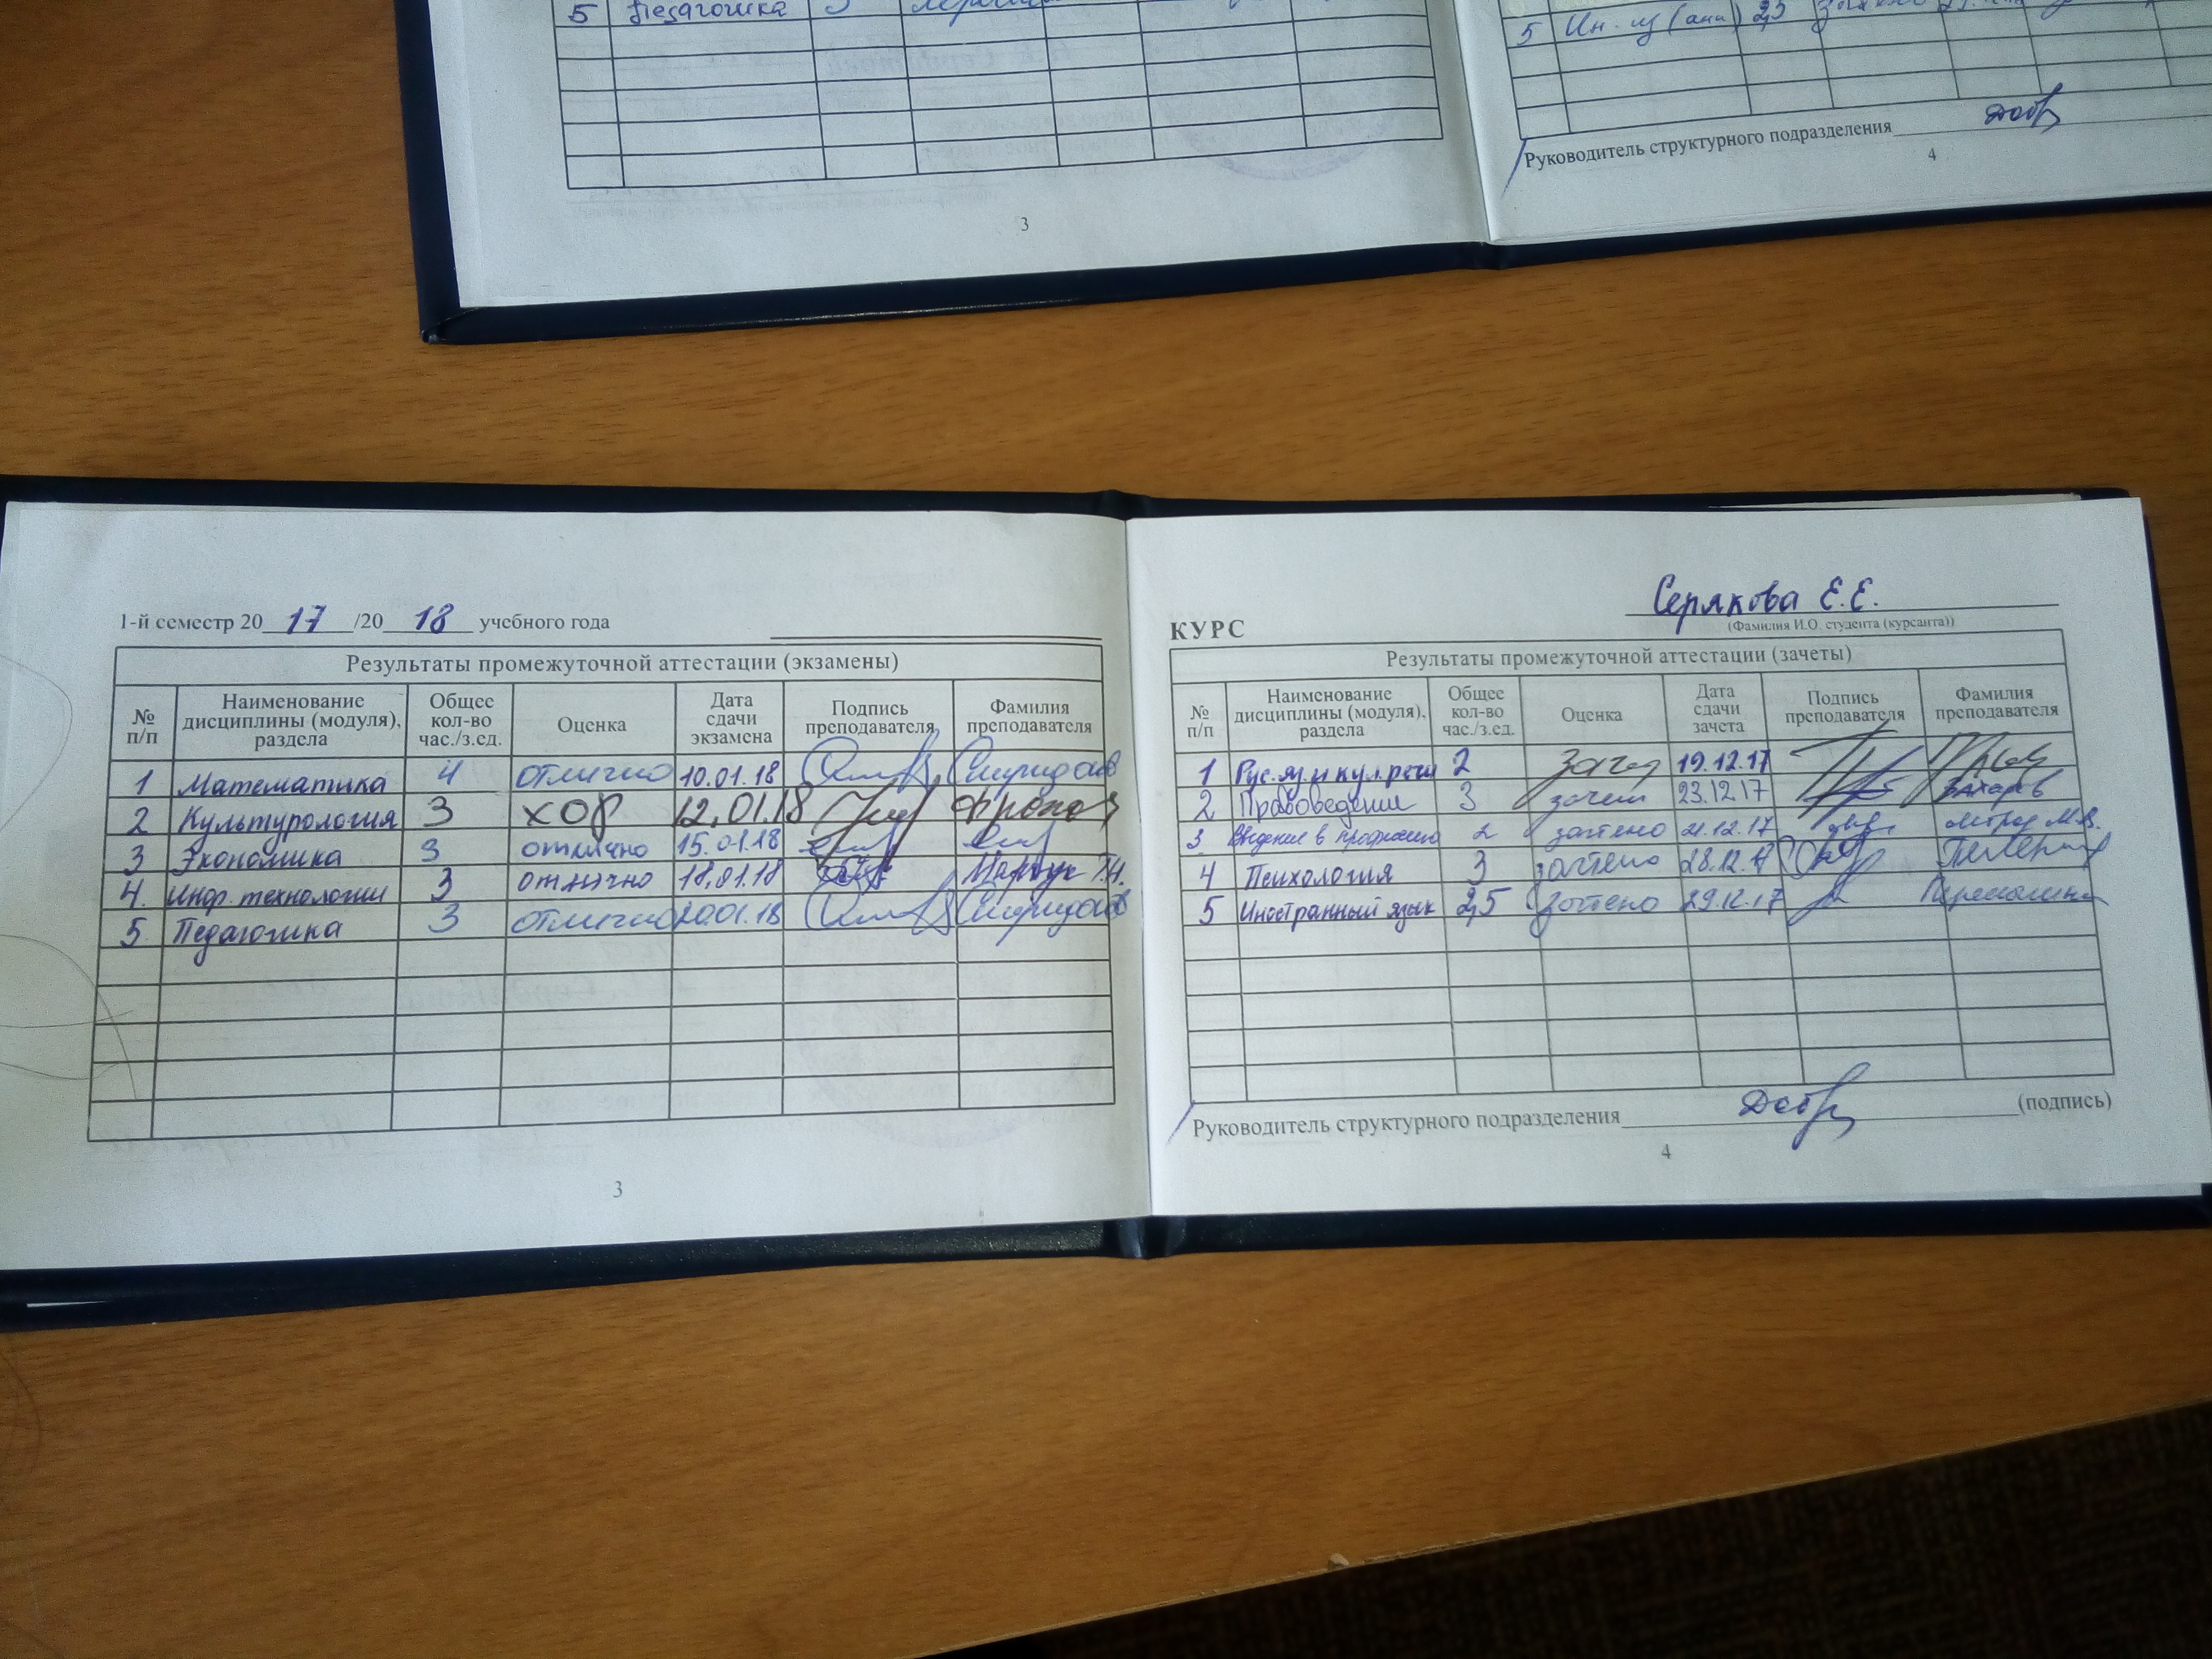 5 Педагогика 3
3
5 Ин. яз (анг) 2,5
Руководитель структурного подразделения
4
1-й семестр 20 17 /20 18 учебного года
Результаты промежуточной аттестации (экзамены)
№ п/п Наименование дисциплины (модуля), раздела Общее кол-во час./з.ед. Оценка Дата сдачи экзамена Подпись преподавателя Фамилия преподавателя
1 Математика 4 отлично 10.01.18
2 Культурология 3 хор 12.01.18
3 Экономика 3 отлично 15.01.18
4. Инф. технологии 3 отлично 18.01.18
5. Педагогика 3 отлично 20.01.18
3
Серякова Е.Е.
КУРС (Фамилия И.О. студента (курсанта))
Результаты промежуточной аттестации (зачеты)
№ п/п Наименование дисциплины (модуля), раздела Общее кол-во час./з.ед. Оценка Дата сдачи зачета Подпись преподавателя Фамилия преподавателя
1 Рус. яз. и кул. речи 2 19.12.17
2 Правоведение 3 зачет 23.12.17 Захаров
3 Введение в профессию 2 зачтено 21.12.17
4 Психология 3 зачтено 28.12.17
5 Иностранный язык 2,5 зачтено 29.12.17
Руководитель структурного подразделения (подпись)
4